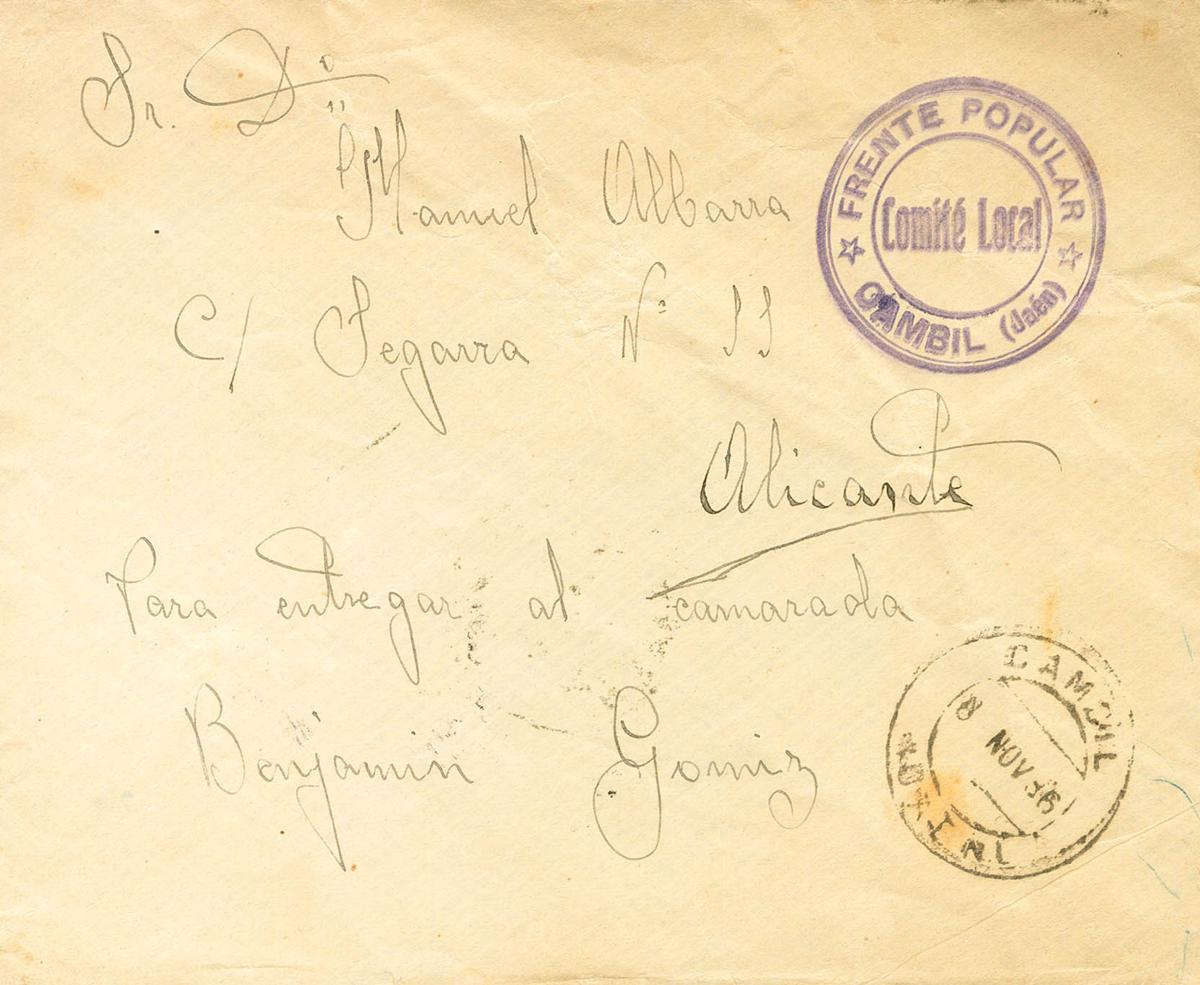 Sr. Dº
Manuel Albarra
C/ Segarra Nº 11
Alicante
Para entregar al camarada
Benjamin Gomiz
FRENTE POPULAR
Comité Local
CAMBIL (Jaén)
CAMBIL
8 NOV 36